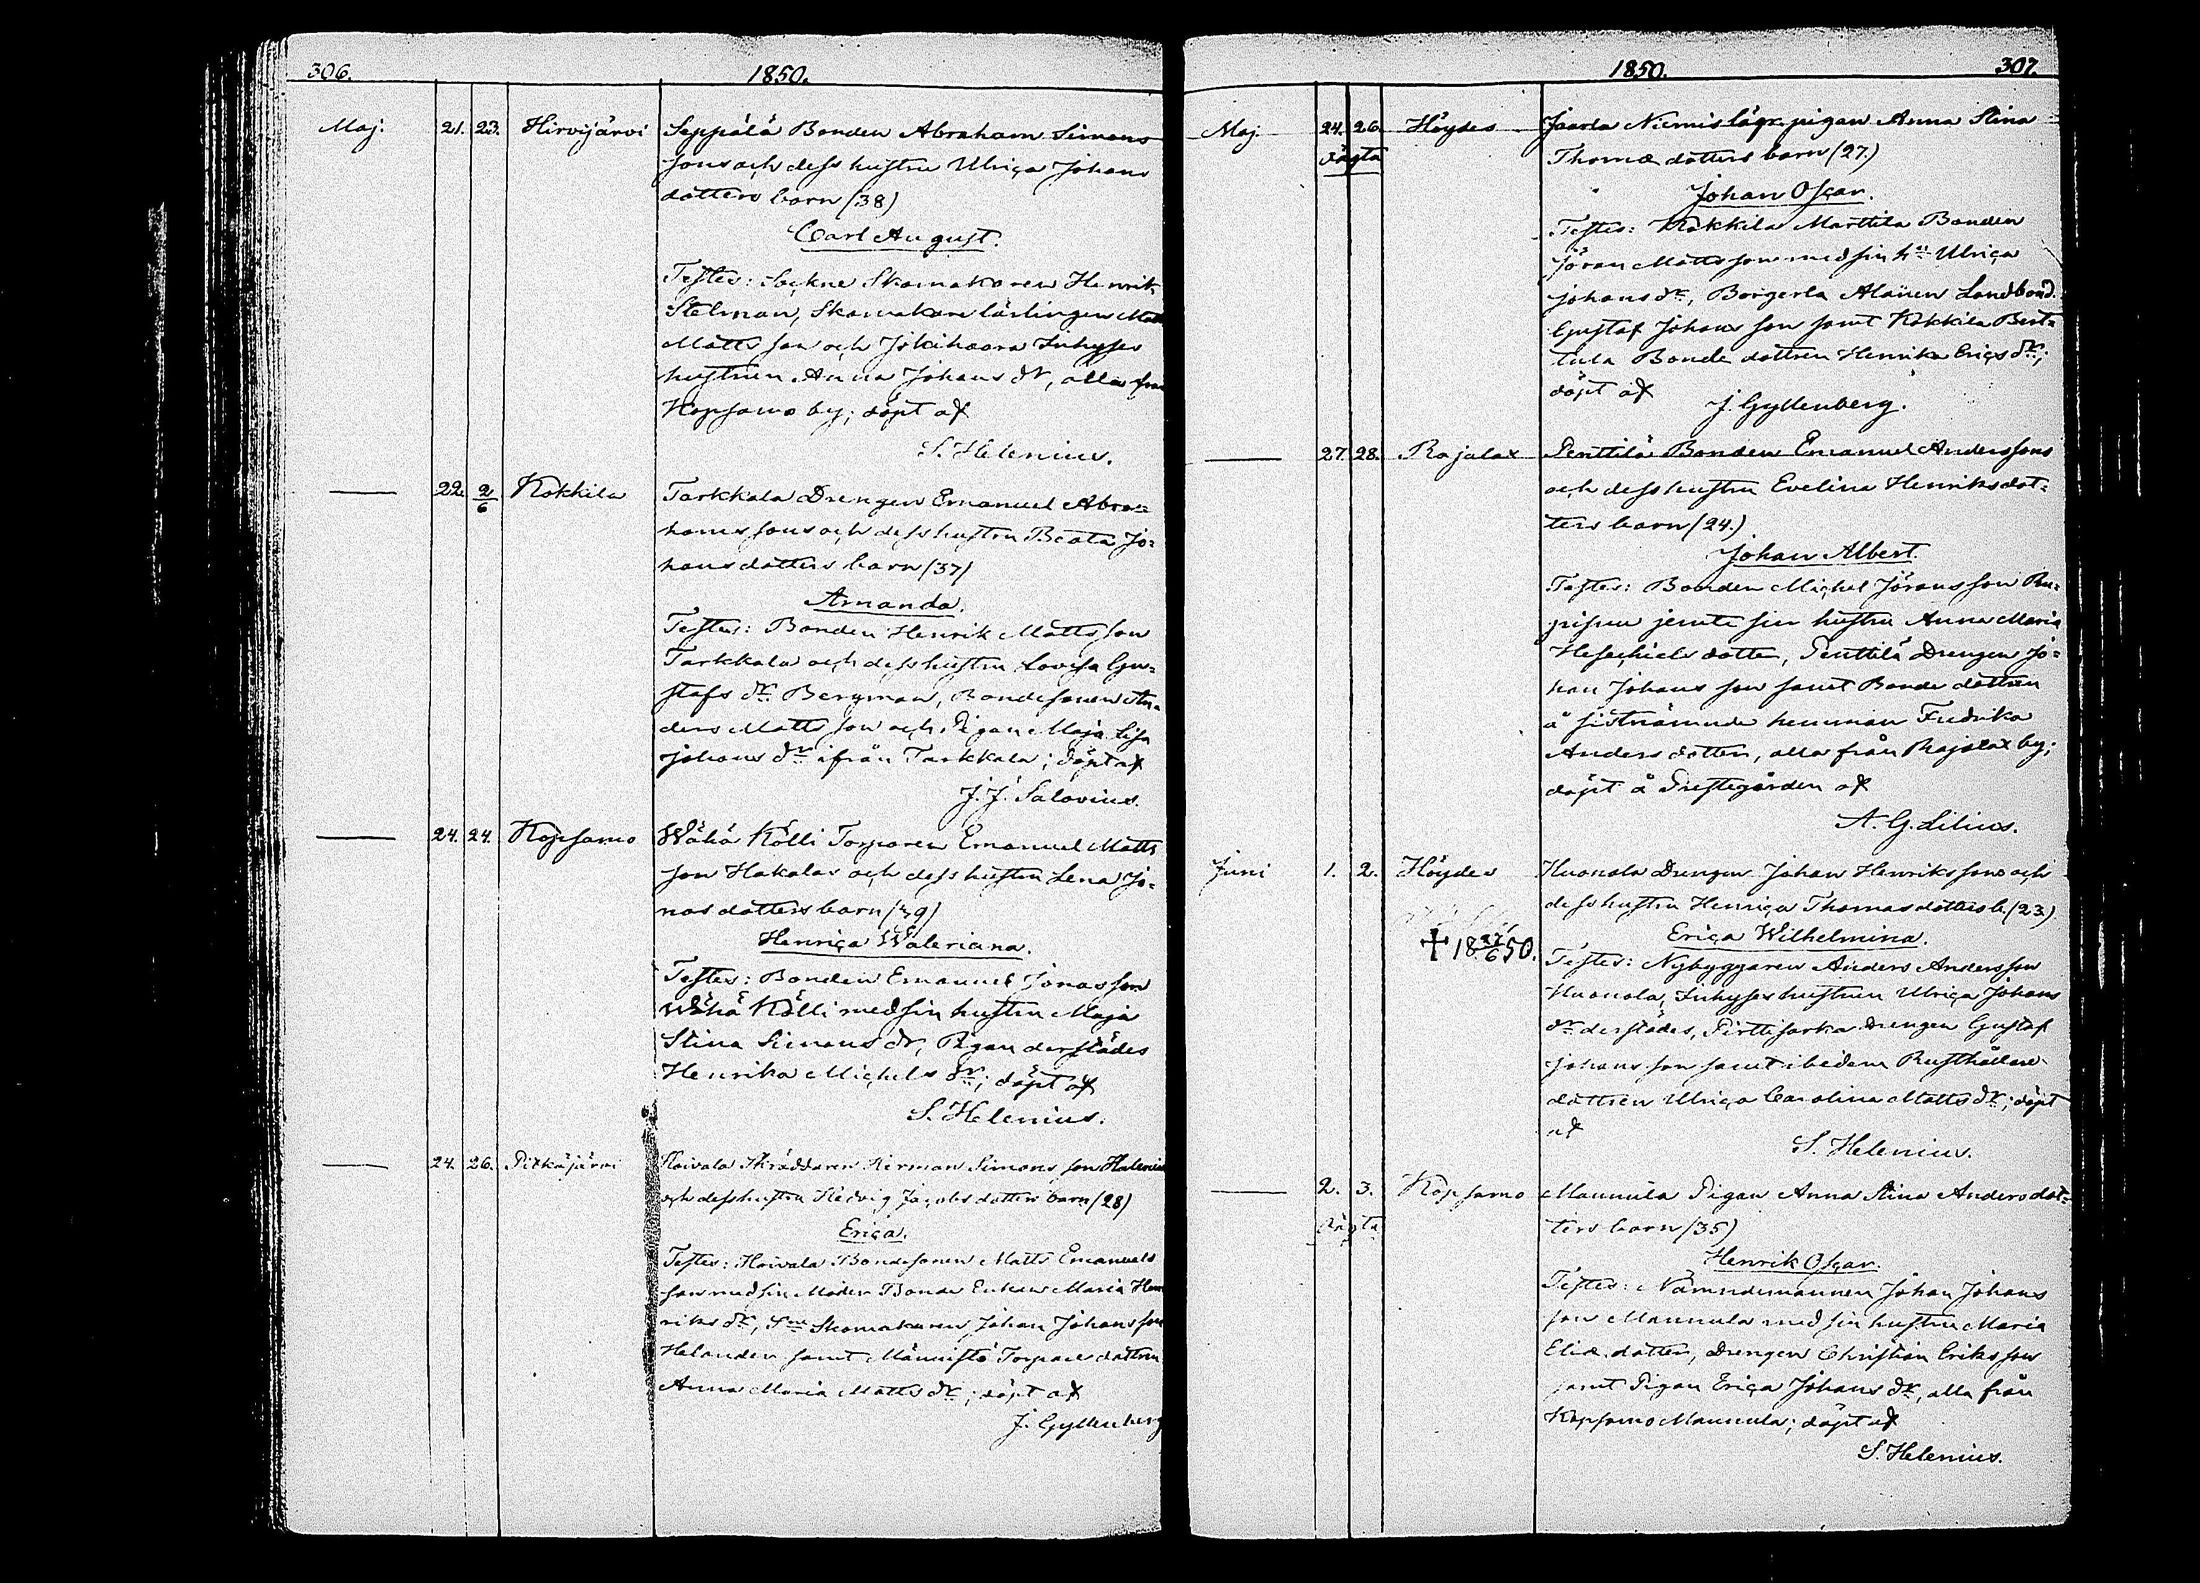 306.
1850.
Maj. 21. 23. Hirvijärvi Seppälä Bonden Abraham Simons
sons och dess hustru Ulrica Johans
dotters barn (38)
Carl August.
Testes: Sockne Skomakaren Henrik
Stelman, Skomakare lärlingen Matts
Matts son och Jokihaara Inhyses
hustrun Anna Johans dr, alla från
Kopsamo by; döpt af
S. Helenius.
22. 2/6 Kokkila Tarkkala Drengen Emanuel Abra=
hams sons och dess hustru Beata Jo=
hans dotters barn (37)
Amanda.
Testes: Bonden Henrik Matts son
Tarkkala och dess hustru Lovisa Gu=
stafs dr Bergman, Bondesonen An=
ders Matts son och Pigan Maja Lisa
Johans dr ifrån Tarkkala; döpt af
J. J. Salovius.
24. 24. Kopsamo Wähä Kölli Torparen Emanuel Matts
son Hakalas och dess hustru Lena Jo=
nas dotters barn (39)
Henrica Waleriana.
Testes: Bonden Emanuel Jonas son
Wähä Kölli med sin hustru Maja
Stina Simons dr, Pigan derstädes
Henrika Michels dr; döpt af
S. Helenius.
24. 26. Pitkäjärvi Koivala Skräddaren Herman Simons son Halenius
och dess hustru Hedvig Jacobs dotters barn (28)
Erica.
Testes: Koivala Bondesonen Matts Emanuels
son med sin Moder Bonde Enkan Maria Hen
riks dr, Sne Skomakaren Johan Johans son
Helander samt Männistö Torpare dottren
Anna Maria Matts dr; döpt af
J. Gyllenberg
1850.
307.
Maj. 24. 26. Höydes Jaarla Niemis lägr. pigan Anna Stina
oägta Thomæ dotters barn (27.)
Johan Oscar.
Testes: Kokkila Marttila Bonden
Jöran Mattsson med sin hu Ulrica
Johans dr, Borgerla Alanen Landbond.
Gustaf Johans son samt Kokkila Bert=
tula Bonde dottren Henrika Erics dr;
döpt af
J. Gyllenberg.
27. 28. Rajalax Penttilä Bonden Emanuel Anderssons
och dess hustru Evelina Henriksdot=
ters barn (24.)
Johan Albert.
Testes: Bonden Michel Jörans son Ru=
pisen jemte sin hustru Anna Maria
Hesechiels dotter, Penttilä Drengen Jo=
han Johans son samt Bonde dottren
å sistnämnde hemman Fredrika
Anders dotter, alla från Rajalax by;
döpt å Prestegården af
A. G. Lilius.
Juni 1. 2. Höydes Huonola Drengen Johan Henriks sons och
dess hustru Henrica Thomas dotters b. (23.)
† 18 27/6 50.
Erica Wilhelmina.
Testes: Nybyggaren Anders Andersson
Huonola, Inhyses hustrun Ulrica Johans
dr derstädes, Pirttisarka Drengen Gustaf
Johans son samt ibidem Rusthållare
dottren Ulrica Carolina Matts dr; döpt
af
S. Helenius.
2. 3. Kopsamo Mannula Pigan Anna Stina Anders dot=
oägta ters barn (35)
Henrik Oscar.
Testes: Nämndemannen Johan Johans
son Mannula med sin hustru Maria
Eliæ dotter, Drengen Christian Eriks son
samt Pigan Erica Johans dr, alla från
Kopsamo Mannula; döpt af
S. Helenius.